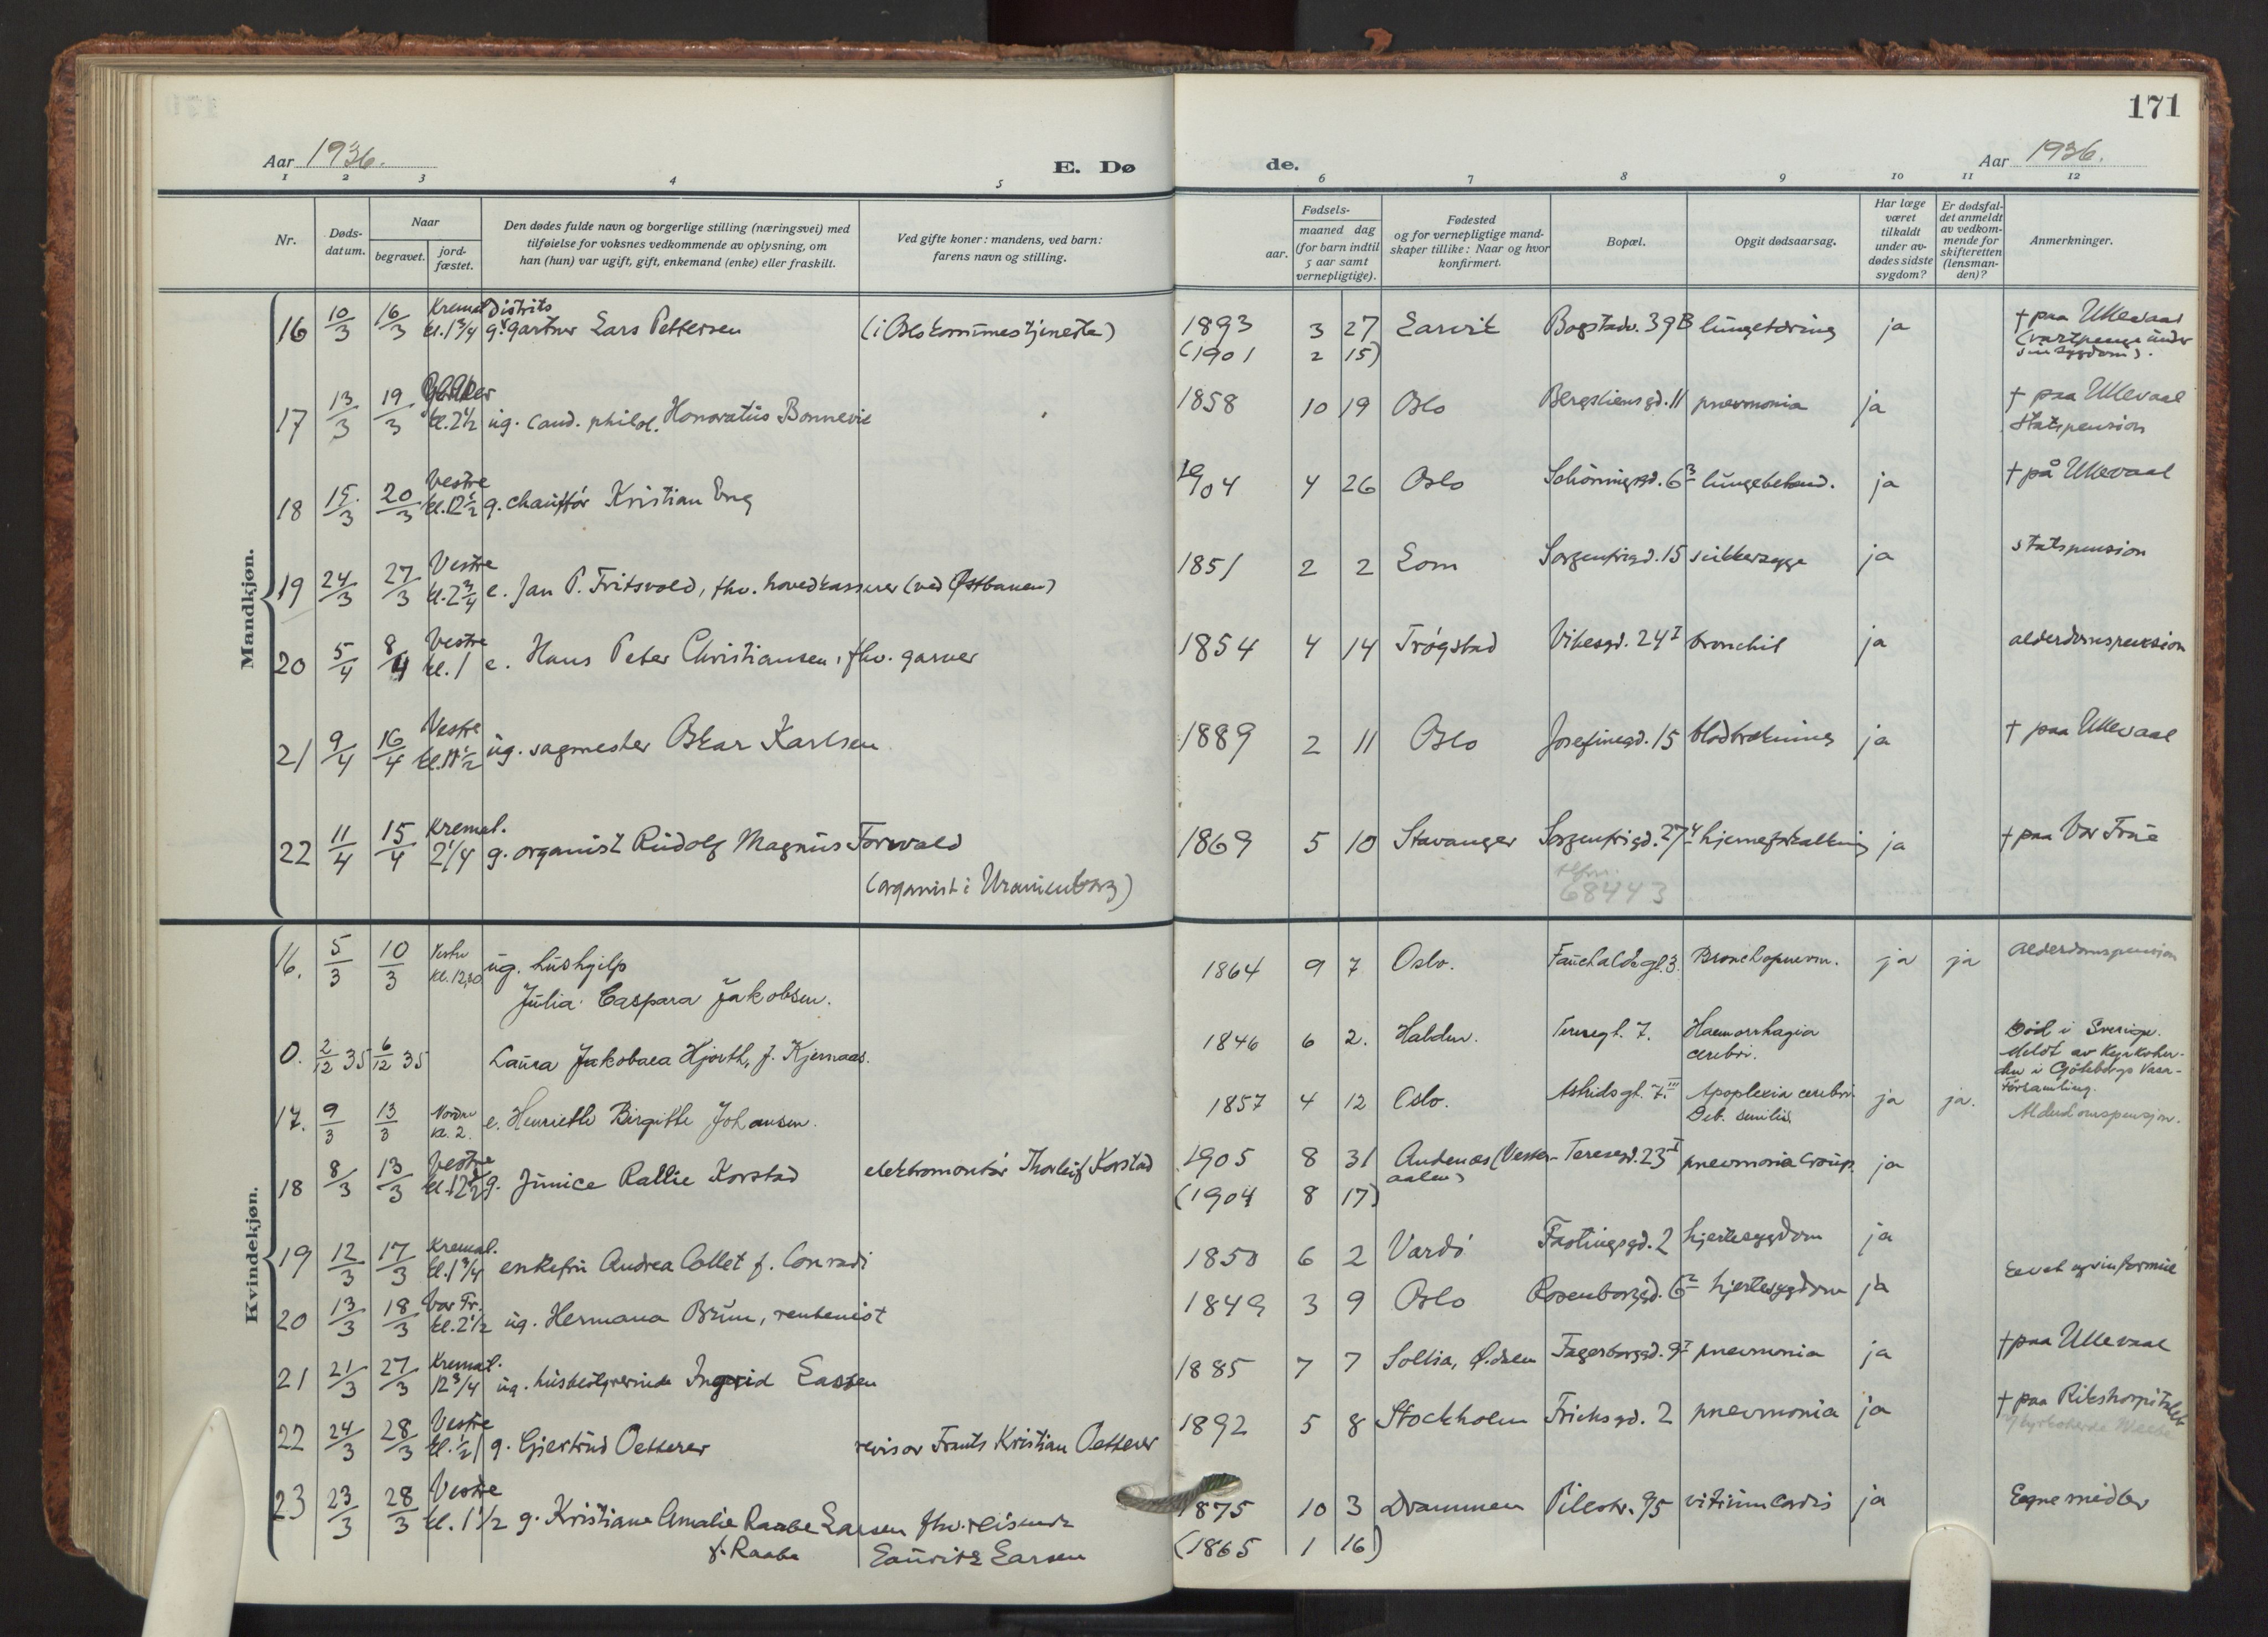 171
Aar 1936.
E. Dø
de.
Aar 1936.
1 2 3 4 5 6 7 8 9 10 11 12
Nr.
Døds-
datum.
Naar
begravet.
jord-
fæstet.
Den dødes fulde navn og borgerlige stilling (næringsvei) med
tilføielse for voksnes vedkommende av oplysning, om
han (hun) var ugift, gift, enkemand (enke) eller fraskilt.
Ved gifte koner: mandens, ved barn:
farens navn og stilling.
Fødsels-
aar.
maaned dag
(for barn indtil
5 aar samt
vernepligtige).
Fødested
og for vernepligtige mand-
skaper tillike: Naar og hvor
konfirmert.
Bopæl.
Opgit dødsaarsag.
Har læge
været
tilkaldt
under av-
dødes sidste
sygdom?
Er dødsfal-
det anmeldt
av vedkom-
mende for
skifteretten
(lensman-
den)?
Anmerkninger.
Mandkjøn.
16 10/3 16/3 Kremat. kl. 1 3/4 g. gartner Lars Pettersen (i Oslo kommunes tjeneste) 1893 3 27 Larvik Bogstadv. 39B lungetæring ja † paa Ullevaal
(1901 2 15)
17 13/3 19/3 kl. 2 1/2 ug. cand. philol. Honoratus Bonnevie 1858 10 19 Oslo Bergsliensgd. 11 pneumonia ja † paa Ullevaal
Statspension
18 15/3 20/3 Vestre kl. 12 1/2 g. chauffør Kristian Eng 1904 4 26 Oslo Schöningsgd. 6 3 lungebetend. ja † på Ullevaal
19 24/3 27/3 Vestre kl. 2 3/4 e. Jan P. Fritsvold, fhv. hovedkasserer (ved Østbanen) 1851 2 2 Lom Sorgenfrigd. 15 sukkersyge ja statspension
20 5/4 8/4 Vestre kl. 1 e. Hans Peter Christiansen, fhv. garver 1854 4 14 Trøgstad Vibesgd. 24 I bronchit ja alderdomspension
21 9/4 16/4 Vestre ug. sagmester Oskar Karlsen 1889 2 11 Oslo Josefinegd. 15 blodbrækning ja † paa Ullevaal
22 11/4 15/4 Kremat. 2 1/4 g. organist Rudolf Magnus Forwald 1869 5 10 Stavanger Sorgenfrigd. 27 4 hjerneforkalkning ja † paa Vor Frue
(organist i Uranienborg) tlfn. 68443
Kvindekjøn.
16. 5/3 10/3 Vestre kl. 12,30 ug. hushjelp 1864 9 7 Oslo. Fauchaldsgt. 3. Bronchopneum. ja ja Alderdomspension
Julia Caspara Jakobsen.
0. 2/12 35 6/12 35 Laura Jakobaea Hjorth, f. Kjernaas. 1846 6 2. Halden. Teresegt. 7. Haemorrhagia cerebri. Død i Sverige.
Meldt av Kyrkoher-
den i Göteborgs Vasa-
församling.
17. 9/3 13/3 Nordre kl. 2. e. Henriette Birgitte Johansen. 1857 4 12 Oslo. Astridsgt. 7 III Apoplexia cerebri. Deb. senilis. ja ja. Alderdomspensjon.
18 8/3 13/3 Vestre kl. 12 1/2 g. Junice Rallie Korstad elektromontør Thorleif Korstad 1905 8 31 Andenæs (Vester-
aalen) Teresegd. 23 I pneumonia croup. ja
(1904 8 17)
19 12/3 17/3 Kremat. kl. 1 3/4 enkefru Andrea Collet f. Conradi 1850 6 2 Vardø Fastingsgd. 2 hjertesygdom ja
20 13/3 18/3 Vor Fr. kl. 2 1/2 ug. Hermana Brun, rentenist 1849 3 9 Oslo Rosenborggd. 6 2 hjertesygdom ja
21 21/3 27/3 Kremat. 12 3/4 ug. husbestyrerinde Ingrid Lassen 1885 7 7 Sollia, Ø.dalen Fagerborggd. 9 I pneumonia ja † paa Ullevaal
22 24/3 28/3 Vestre g. Gjertrud Oetterer revisor Frants Kristian Oetterer 1892 5 8 Stockholm Fricksgd. 2 pneumonia ja † paa Rikshospitalet
23 23/3 28/3 Vestre kl. 1 1/2 g. Kristiane Amalie Raabe Larsen fhv. reisende 1875 10 3 Drammen Pilestr. 75 vitium cordis ja Egne midler
f. Raabe Lauritz Larsen (1865 1 16)